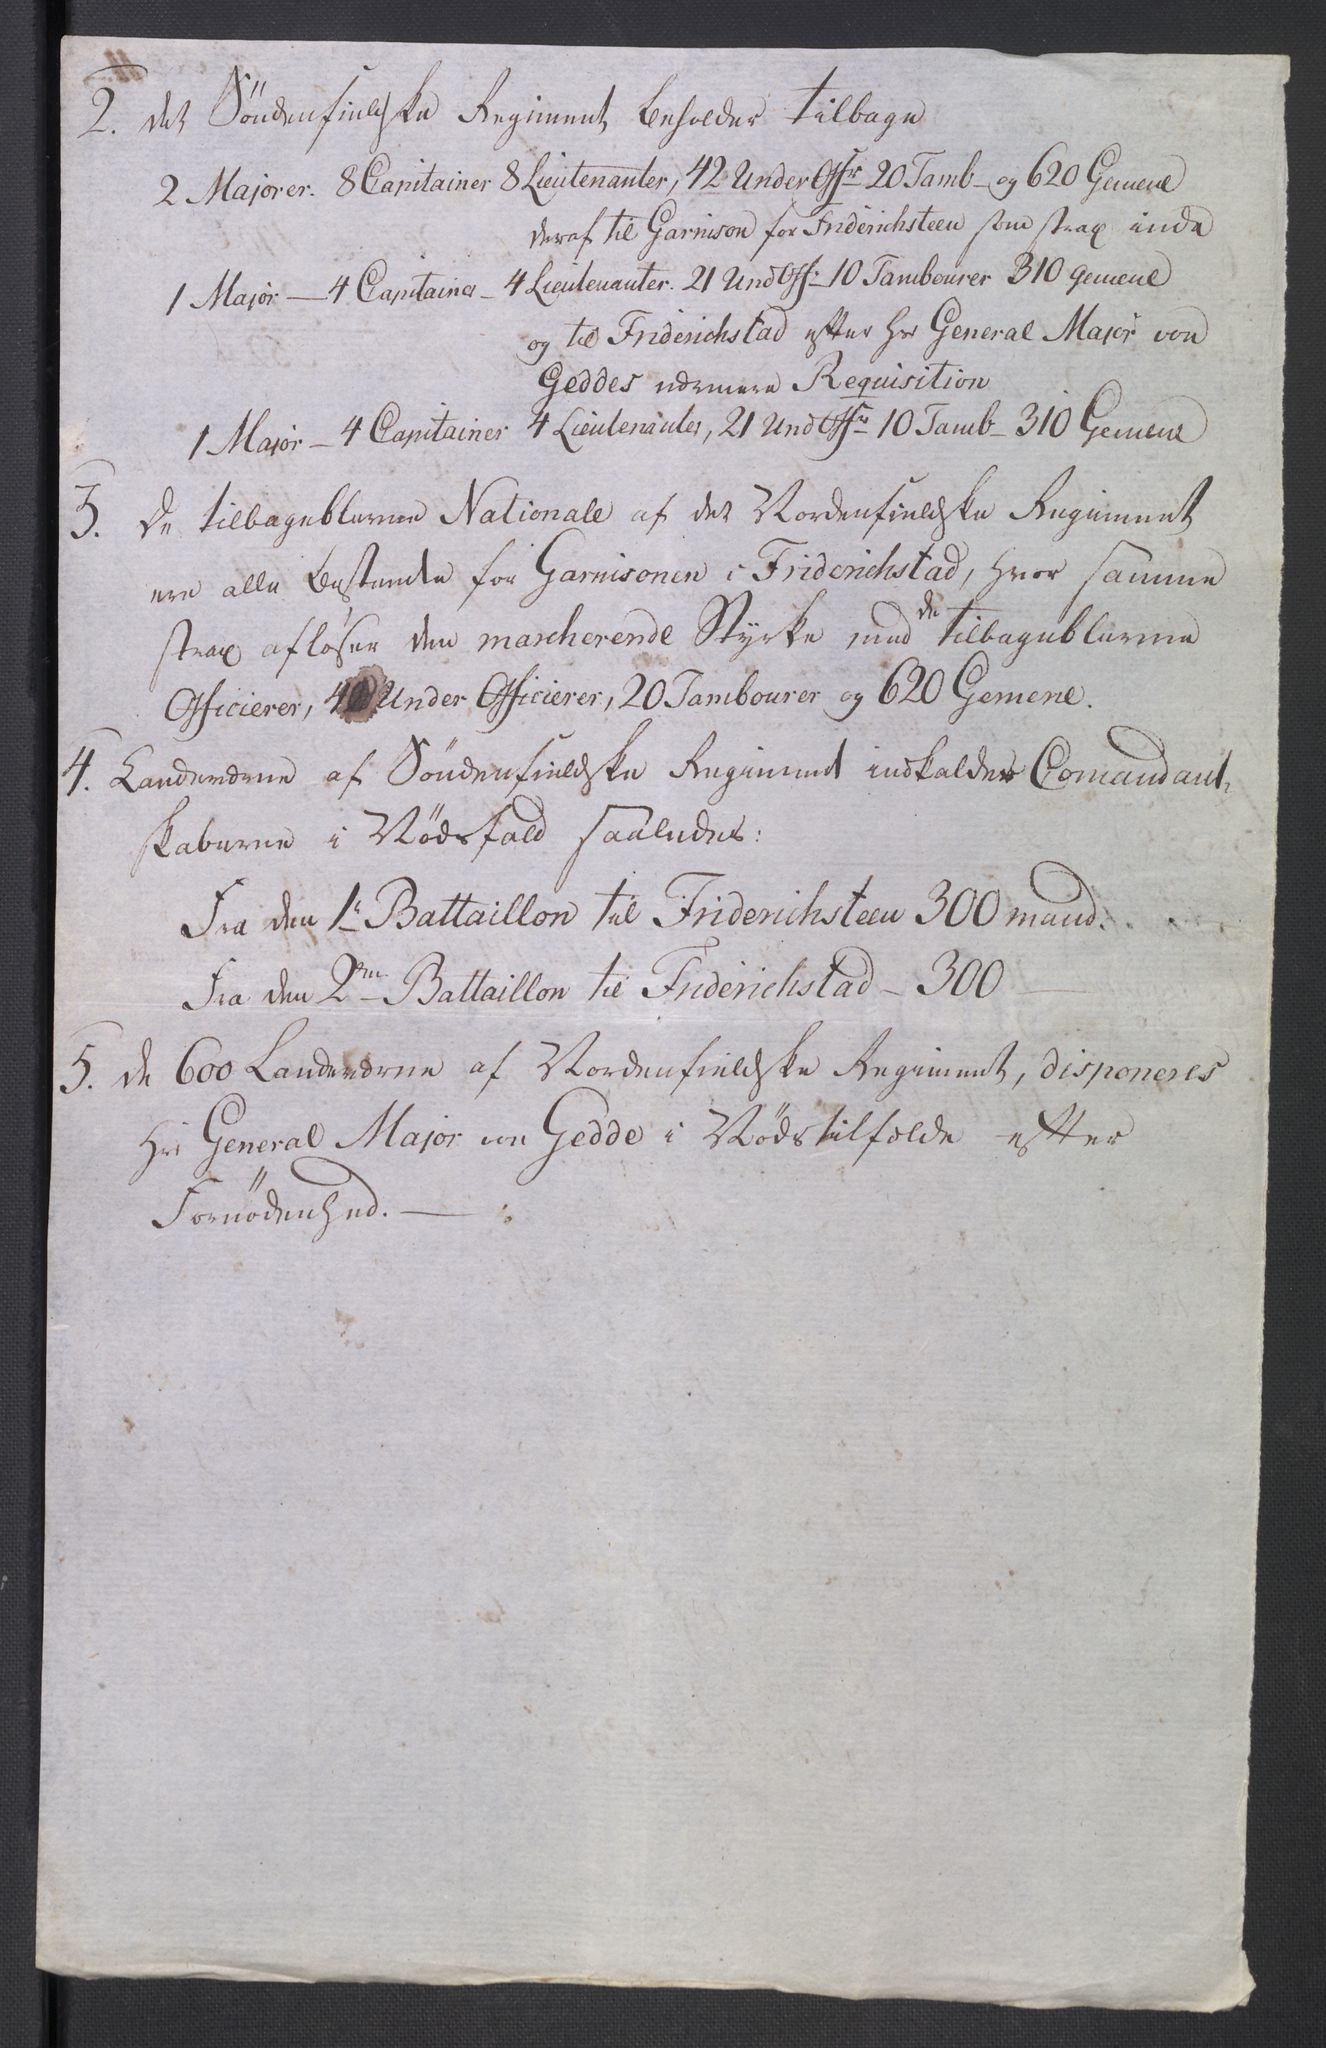 2. det Söndenfieldske Regiment beholder tilbage
2 Majorer. 8 Capitainer 8 Lieutenanter, 42 Under Offr 20 Tamb - og 620 Gemene
deraf til Garnison for Friderichsteen som strax inde
1 Major — 4 Capitainer - 4 Lieutenanter. 21 UndOffr - 10 Tambourer 310 gemene
og til Friderichstad efter Hr General Major von
Geddes nærmere Requisition
1 Major - 4 Capitainer 4 Lieutenanter, 21 UndOffr - 10 Tamb - 310 Gemene
3. De tilbageblevne Nationale af det Nordenfieldske Regiment
ere alle bestemte for Garnisonen i Friderichstad, hvor samme
strax afløser den marcherende Styrke med de tilbageblevne
Officierer, Under Officierer, 20 Tambourer og 620 Gemene.
4. Landeværne af Söndenfieldske Regiment indkalder Comandant-
skaberne i Nödsfald saaledes:
Fra den 1e Battaillon til Friderichsteen 300 mand.
Fra den 2den Battaillon til Friderichstad - 300 —
5. de 600 Landeværne af Nordenfieldske Regiment, disponeres
Hr General Major von Gedde i Nödstilfælde efter
Fornödenhed. —